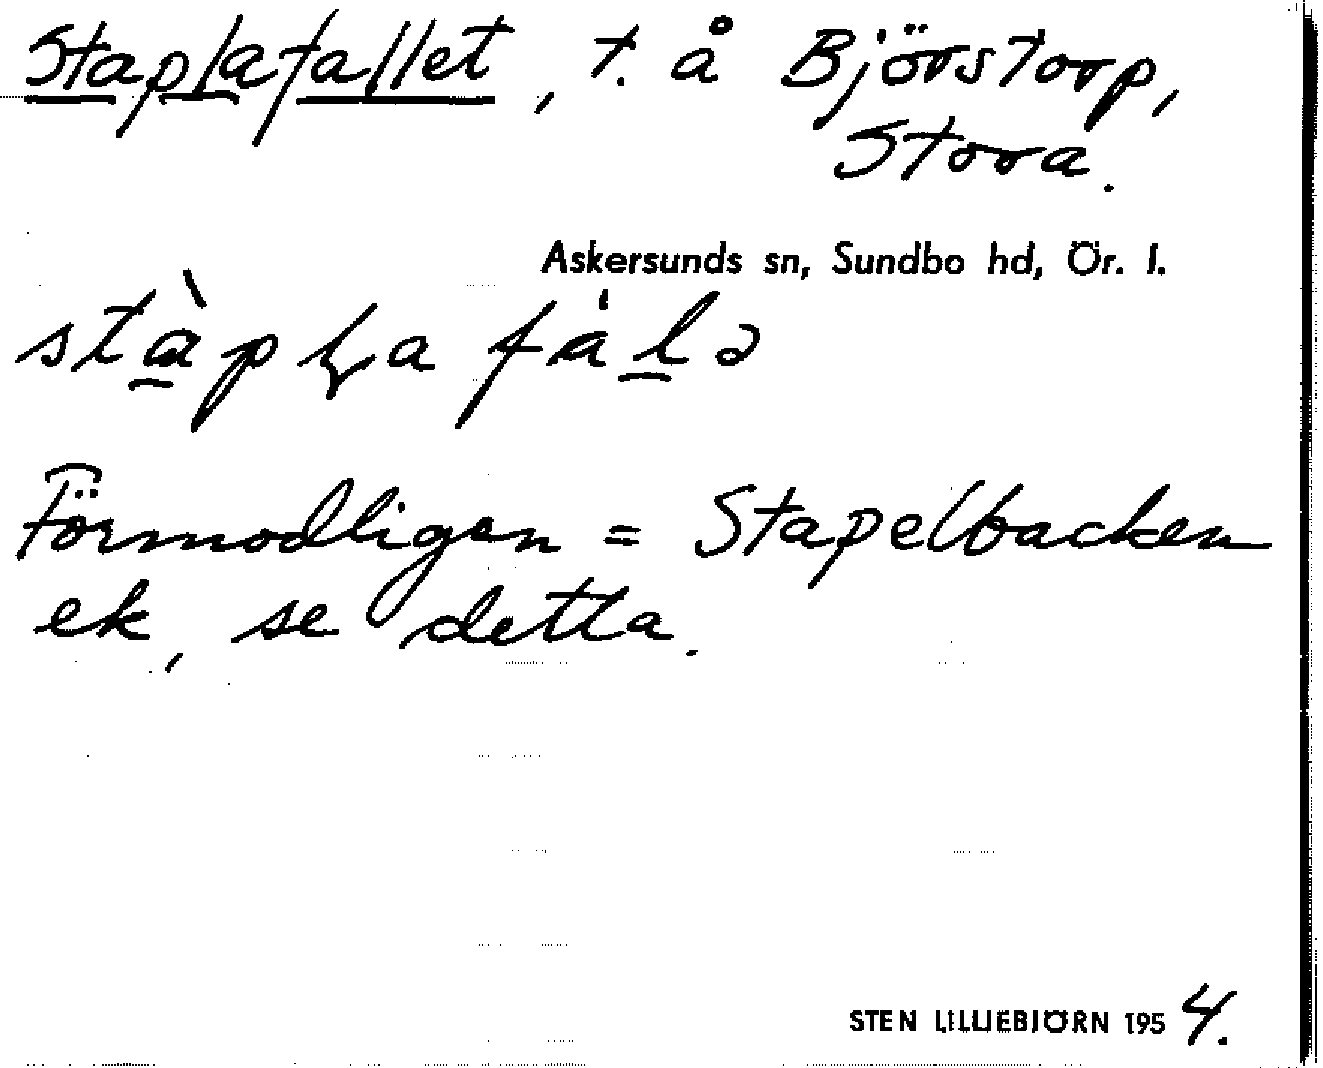 Staplafallet, t. å Björstorp,
Stora.
Askersunds sn, Sundbo hd, Ör. l.
Förmodligen = Stapelbacken
ek, se detta.
STEN LILLIEBJÖRN 1954.